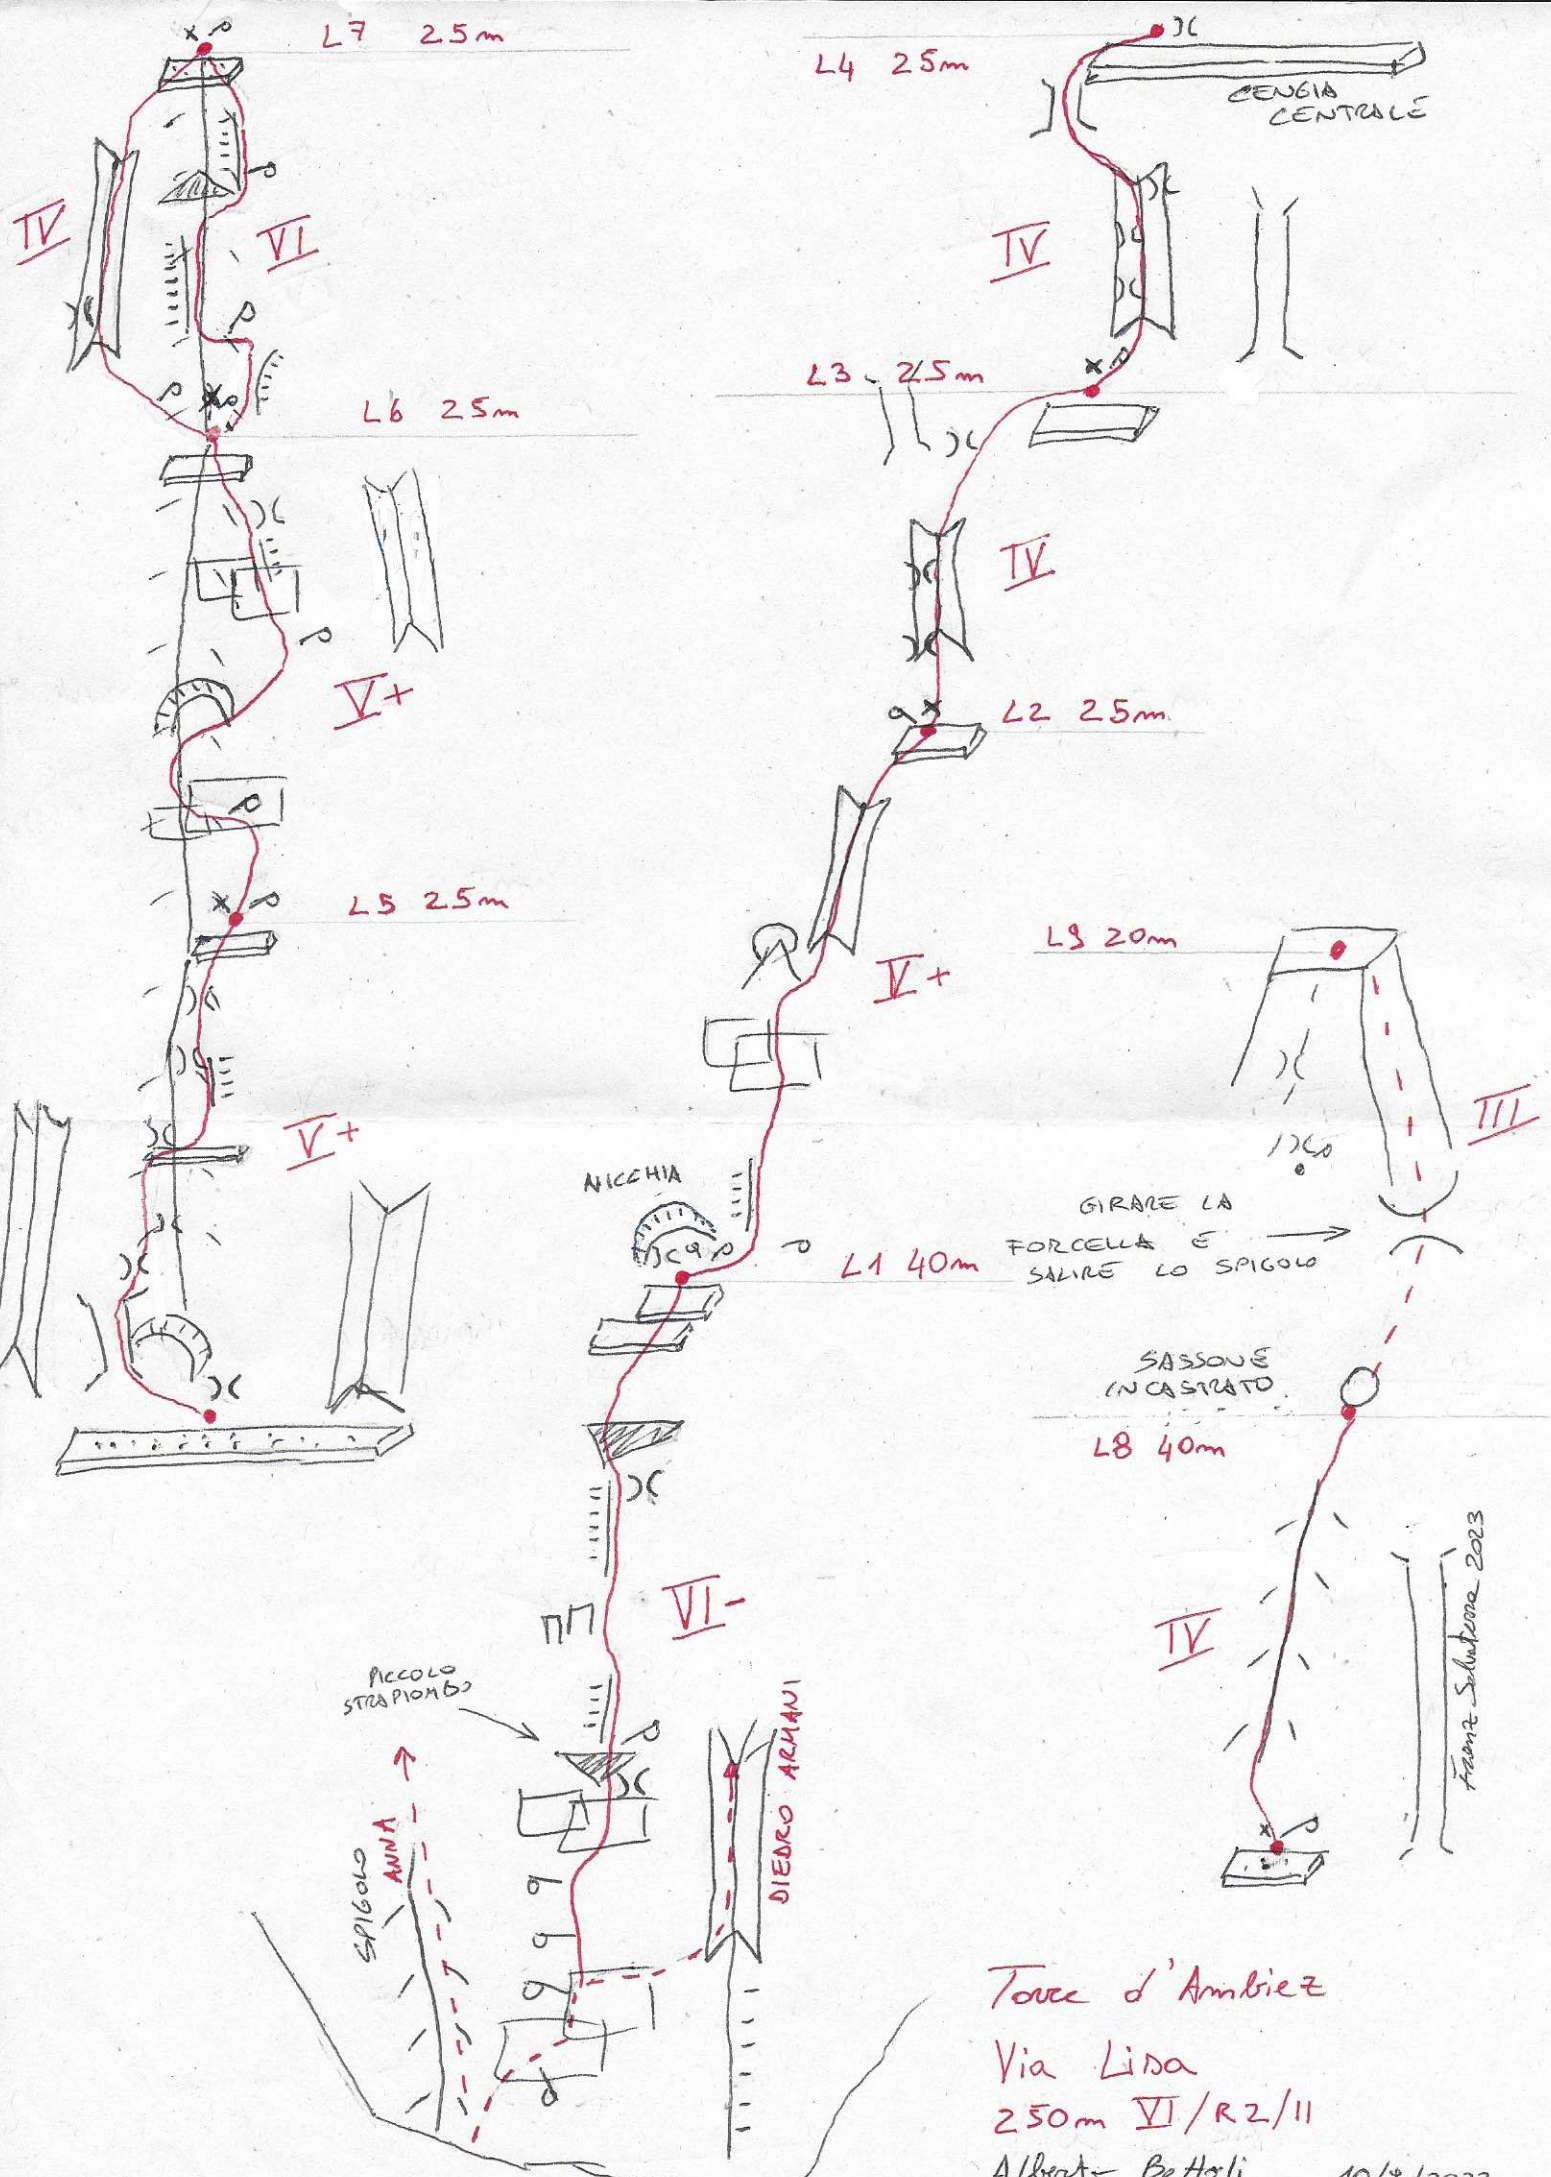 L7 25m
IV
VI
L6 25m
V+
L5 25m
V+
L4 25m
CENGIA
CENTRALE
IV
L3 25m
IV
L2 25m
V+
NICCHIA
L1 40m
VI-
PICCOLO
STRAPIOMBO
SPIGOLO
ANNA
DIEDRO ARMANI
L9 20m
III
GIRARE LA
FORCELLA E
SALIRE LO SPIGOLO
SASSONE
INCASTRATO
L8 40m
IV
Franz Salvaterra 2023
Torre d'Ambiez
Via Lisa
250m VI/R2/II